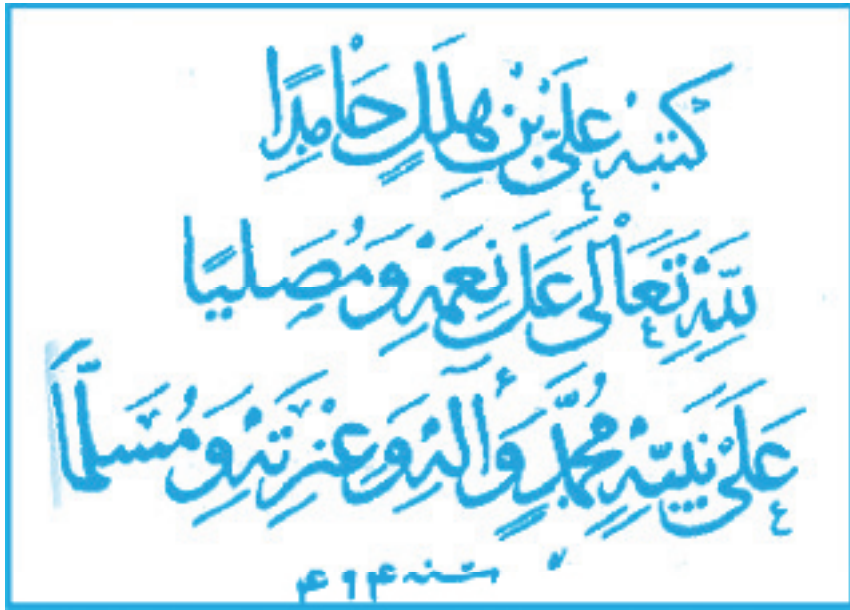 كتبه عَلَيّ بْن هِلَلٍ حَامِدًا
لِلّهِ تَعَالَى عَلَى نِعَمِهِ وَمُصَلِيًا
عَلَى نَبِيّهِ مُحَمَّدٍ وَآلِهِ وَعِتْرَتِهِ وَمُسَلِّمًا
سنه ۴۹۴